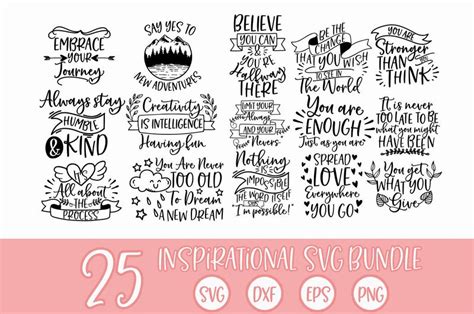 EMBRACE
your
Journey
SAY YES TO
NEW ADVENTURES
BELIEVE
YOU CAN
&
YOU'RE
Halfway
THERE
BE THE
CHANGE
THAT YOU WISH
TO SEE IN
The World
YOU ARE
Stronger
THAN YOU
THINK
Always stay
HUMBLE
& KIND
Creativity
IS INTELLIGENCE
Having fun
LIMIT YOUR
Always
AND YOUR
Nevers
You are
ENOUGH
Just as you are
It is never
TOO LATE TO BE
what you might
HAVE BEEN
All about
THE
PROCESS
You Are Never
TOO OLD
To Dream
A NEW DREAM
Nothing
IS
IMPOSSIBLE
THE WORD ITSELF
I'm possible!
SPREAD
LOVE
Everywhere
YOU GO
You get
WHAT YOU
Give
25 INSPIRATIONAL SVG BUNDLE
SVG DXF EPS PNG